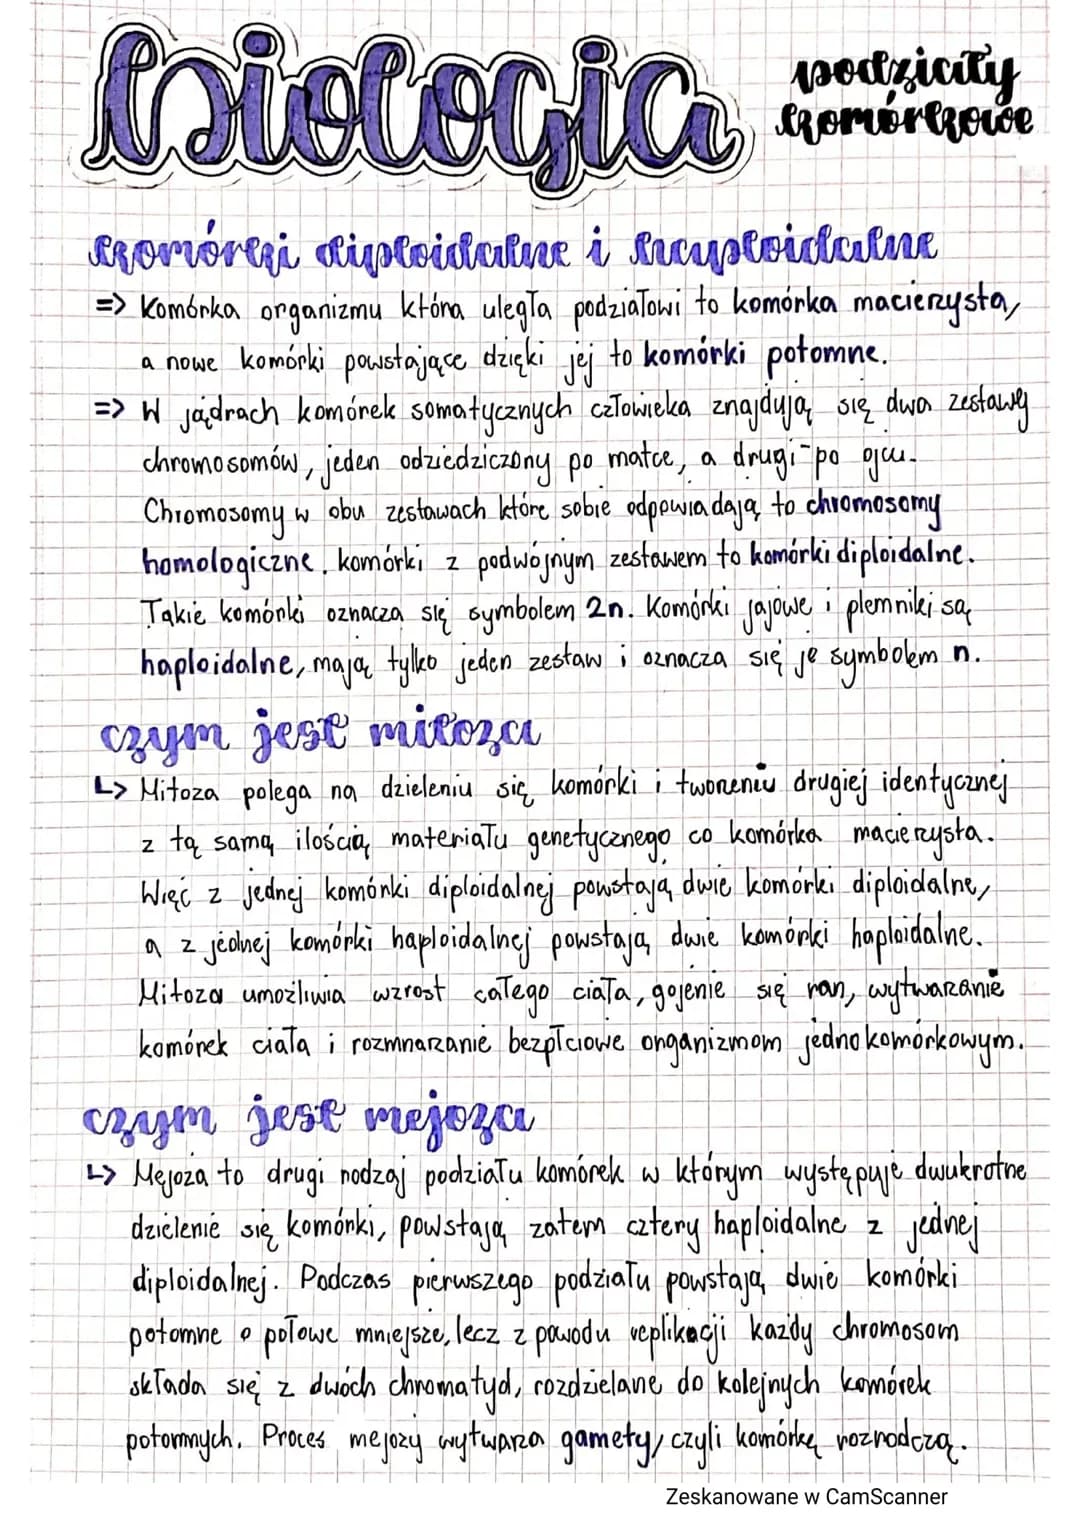 biologia
podziały
komórkowe
komórki diploidalne i haploidalne
=> Komórka organizmu która uległa podziałowi to komórka macierzysta,
a nowe komórki powstające dzięki jej to komórki potomne.
=> W jądrach komórek somatycznych człowieka znajdują się dwa zestawy
chromosomów, jeden odziedziczony po matce, a drugi-po ojcu.
Chromosomy w obu zestawach które sobie odpowiadają to chromosomy
homologiczne. komórki z podwójnym zestawem to komórki diploidalne.
Takie komórki oznacza się symbolem 2n. Komórki jajowe i plemniki są
haploidalne, mają tylko jeden zestaw i oznacza się je symbolem n.
czym jest mitoza
↳ Mitoza polega na dzieleniu się komórki i tworzeniu drugiej identycznej
z tą samą ilością materiału genetycznego co komórka macierzysta.
Więc z jednej komórki diploidalnej powstają dwie komórki diploidalne,
a z jednej komórki haploidalnej powstają dwie komórki haploidalne.
Mitoza umożliwia wzrost całego ciała, gojenie się ran, wytwarzanie
komórek ciała i rozmnarzanie bezpłciowe organizmom jednokomórkowym.
czym jest mejoza
↳ Mejoza to drugi rodzaj podziału komórek w którym występuje dwukrotne
dzielenie się komórki, powstają zatem cztery haploidalne z jednej
diploidalnej. Podczas pierwszego podziału powstają dwie komórki
potomne o połowe mniejsze, lecz z powodu replikacji każdy chromosom
składa się z dwóch chromatyd, rozdzielane do kolejnych komórek
potomnych. Proces mejozy wytwarza gamety, czyli komórkę rozrodczą.
Zeskanowane w CamScanner